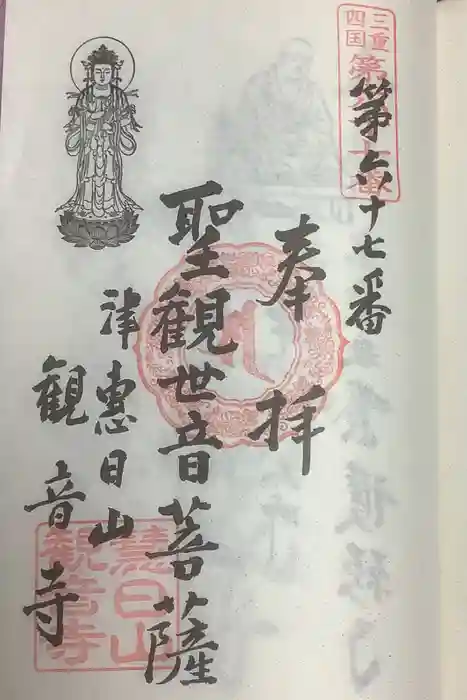 三重
四国
第六十七番
奉拝
聖観世音菩薩
津恵日山
観音寺
慧日山
観音寺